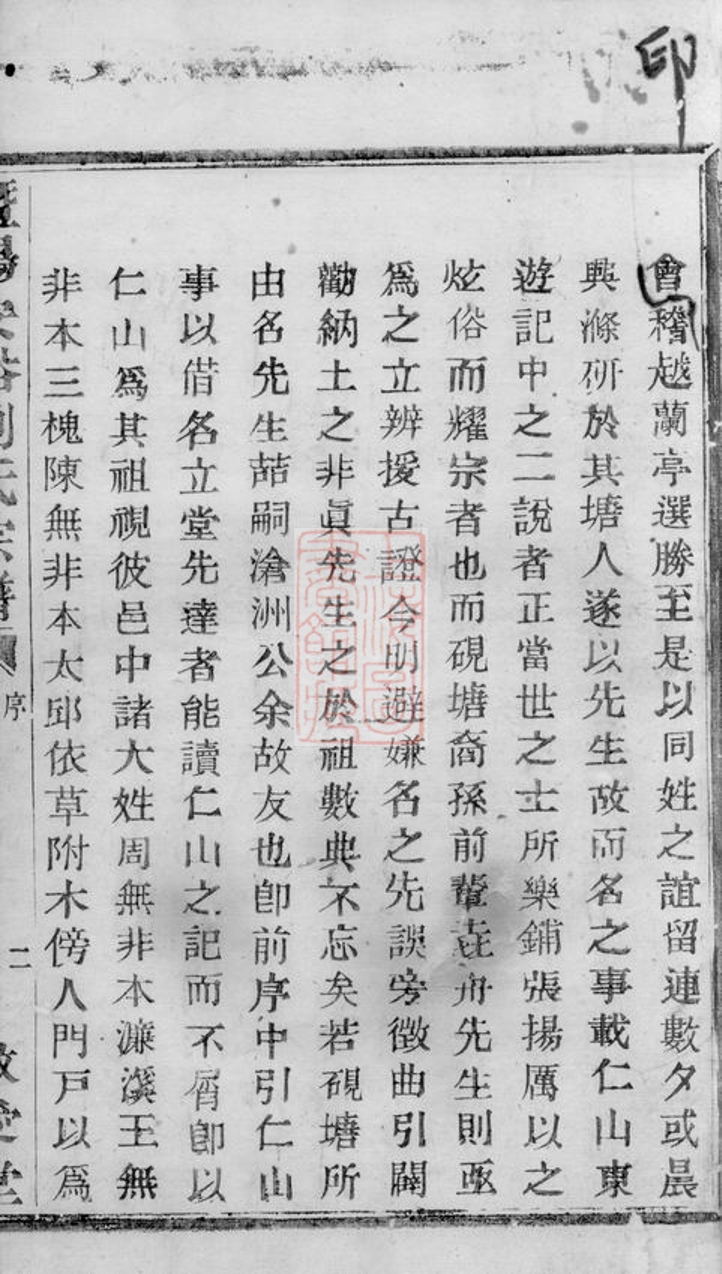 印
會稽越蘭亭選勝至是以同姓之誼留連數夕或晨
興滌硏於其塘人遂以先生故而名之事載仁山東
遊記中之二說者正當世之士所樂鋪張揚厲以之
炫俗而耀宗者也而硯塘裔孫前輩舟先生則亟
爲之立辨援古證今明避嫌名之先誤旁徵曲引闢
勸納土之非眞先生之於祖數典不忘矣若硯塘所
由名先生喆嗣滄洲公余故友也卽前序中引仁山
事以借名立堂先達者能讀仁山之記而不屑卽以
仁山爲其祖視彼邑中諸大姓周無非本濂溪王無
非本三槐陳無非本太邱依草附木傍人門戸以爲
劉氏宗譜
序
二